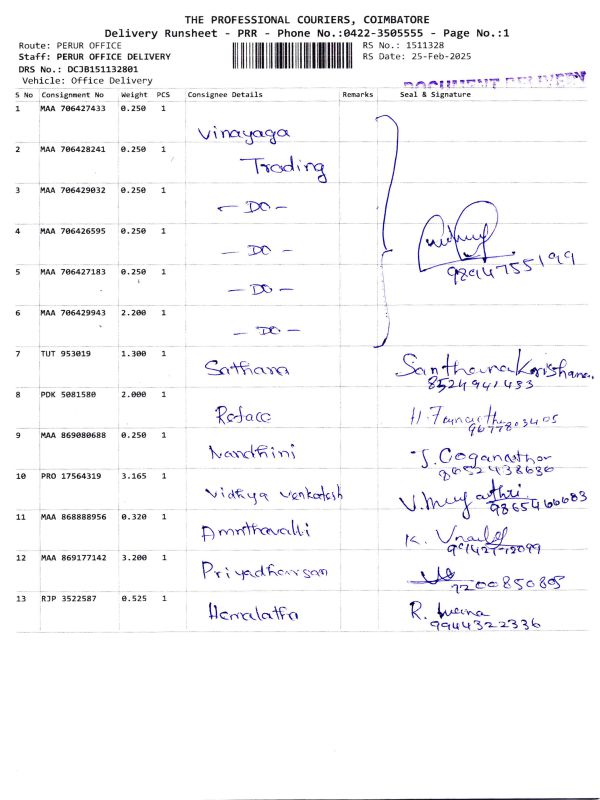 THE PROFESSIONAL COURIERS, COIMBATORE
Delivery Runsheet - PRR - Phone No.:0422-3505555 - Page No.:1
Route: PERUR OFFICE RS No.: 1511328
Staff: PERUR OFFICE DELIVERY RS Date: 25-Feb-2025
DRS No.: DCJB151132801
Vehicle: Office Delivery
DOCUMENT DELIVERY
S No Consignment No Weight PCS Consignee Details Remarks Seal & Signature
1 MAA 706427433 0.250 1 Vinayaga
2 MAA 706428241 0.250 1 Trading
3 MAA 706429032 0.250 1 - DO -
4 MAA 706426595 0.250 1 - DO -
9894755199
5 MAA 706427183 0.250 1 - DO -
6 MAA 706429943 2.200 1 - DO -
7 TUT 953019 1.300 1 Sathana Santhanakrishana.
8524941433
8 PDK 5081580 2.000 1
9677803405
9 MAA 869080688 0.250 1 Nandhini
8652438636
10 PRO 17564319 3.165 1 Vidhya Venkatesh
9865466683
11 MAA 868888956 0.320 1 Amrithavalli K.
12 MAA 869177142 3.200 1 Priyadharsan
7200850805
13 RJP 3522587 0.525 1 Hemalatha R.
9944322336